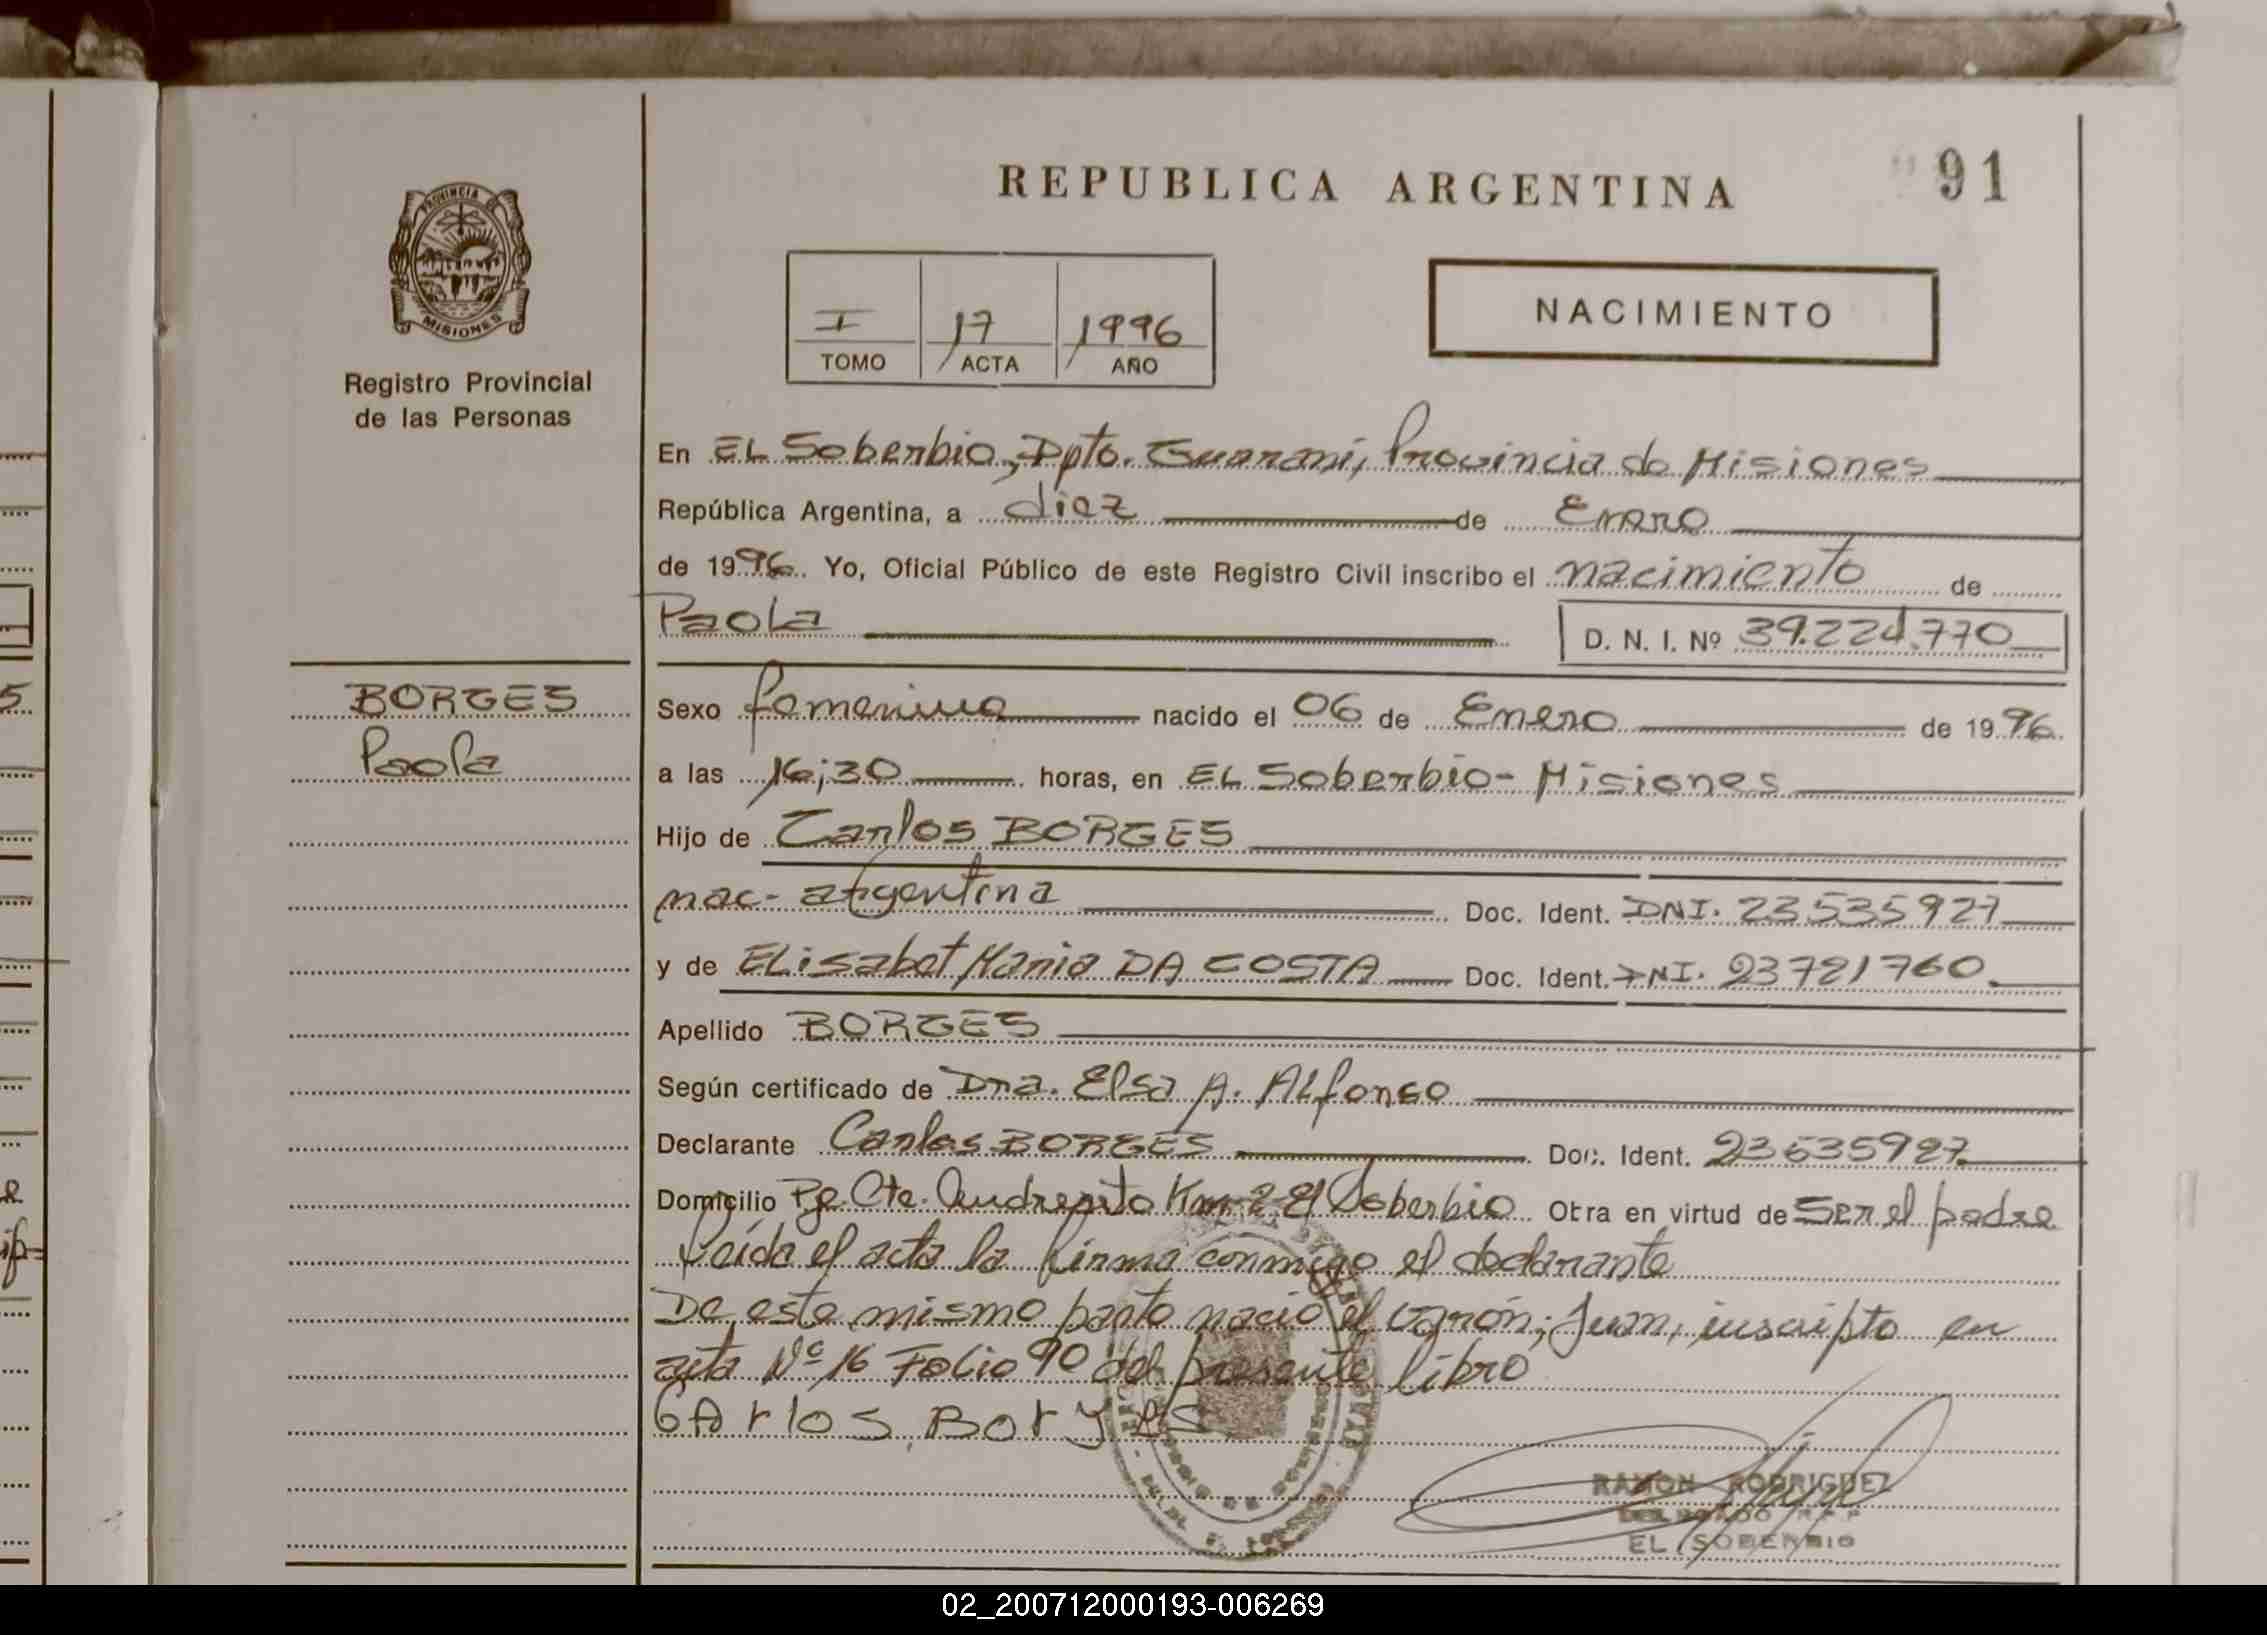 REPUBLICA ARGENTINA
91
PROVINCIA DE
MISIONES
Registro Provincial
de las Personas
I 17 1996
TOMO ACTA AÑO
NACIMIENTO
En EL Soberbio, Dpto. Guarani, Provincia de Misiones
República Argentina, a diez de Enero
de 1996. Yo, Oficial Público de este Registro Civil inscribo el nacimiento de
Paola
D. N. I. Nº 39.224.770
BORGES
Paola
Sexo femenino nacido el 06 de Enero de 1996.
a las 16;30 horas, en EL Soberbio- Misiones
Hijo de Carlos BORGES
nac- argentina Doc. Ident. DNI. 23535927
y de ELisabet Maria DA COSTA Doc. Ident. DNI. 23721760
Apellido BORGES
Según certificado de Dra. Elsa A. ALfonso
Declarante Carlos BORGES Doc. Ident. 23535927
Domicilio Pje. Cte. Andresito Km-2-El Soberbio Otra en virtud de Ser el padre
Leida el acta la firma conmigo el declarante
De este mismo parto nació el varón; Juan, inscripto en
acta Nº 16 Folio 90 del presente libro
CArlos Borges
RAMON RODRIGUEZ
DELEGADO R.P.P
EL SOBERBIO
02_200712000193-006269